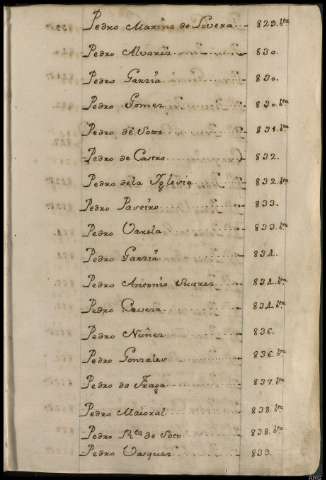 Pedro Marino de Lovera 829. vta
Pedro Alvares 830.
Pedro Garzia 830.
Pedro Gomes 830. vta
Pedro de Soto 831. vta
Pedro de Castro 832.
Pedro dela Iglesia 832. vta
Pedro Paseiro 833.
Pedro Varela 833. vta
Pedro Garzia 834.
Pedro Antonio Suares 834. vta
Pedro 834. vta
Pedro Nuñes 836.
Pedro Gonzales 836. vta
Pedro da Fraga 837. vta
Pedro Maioral 838. vta
Pedro de Soto 838. vta
Pedro Vasques 839.